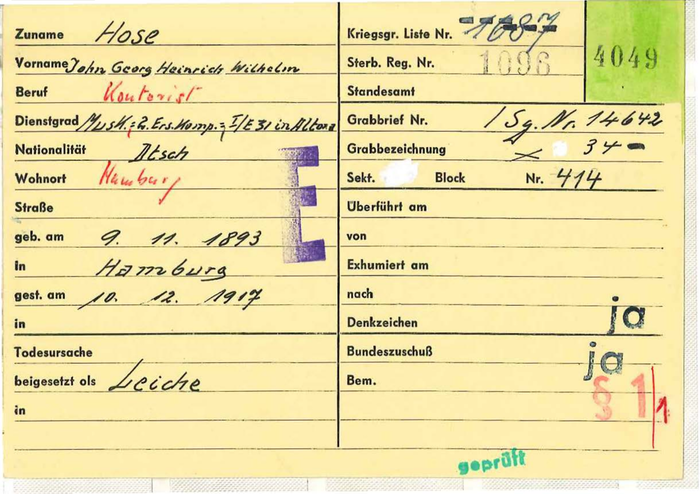 Zuname Hose
Vorname John Georg Heinrich Wilhelm
Beruf Kontorist
Dienstgrad Musk. 2. Ers. Komp. I/E 31 in Altona
Nationalität Dtsch
Wohnort Hamburg
Straße
geb. am 9. 11. 1893
in Hamburg
gest. am 10. 12. 1917
in
Todesursache
beigesetzt als Leiche
in
E
Kriegsgr. Liste Nr. 1087
Sterb. Reg. Nr. 1096
Standesamt
4049
Grabbrief Nr. / Sg. Nr. 14642
Grabbezeichnung X 34 -
Sekt. Block Nr. 414
Überführt am
von
Exhumiert am
nach
Denkzeichen ja
Bundeszuschuß ja
Bem. § 1 1
geprüft